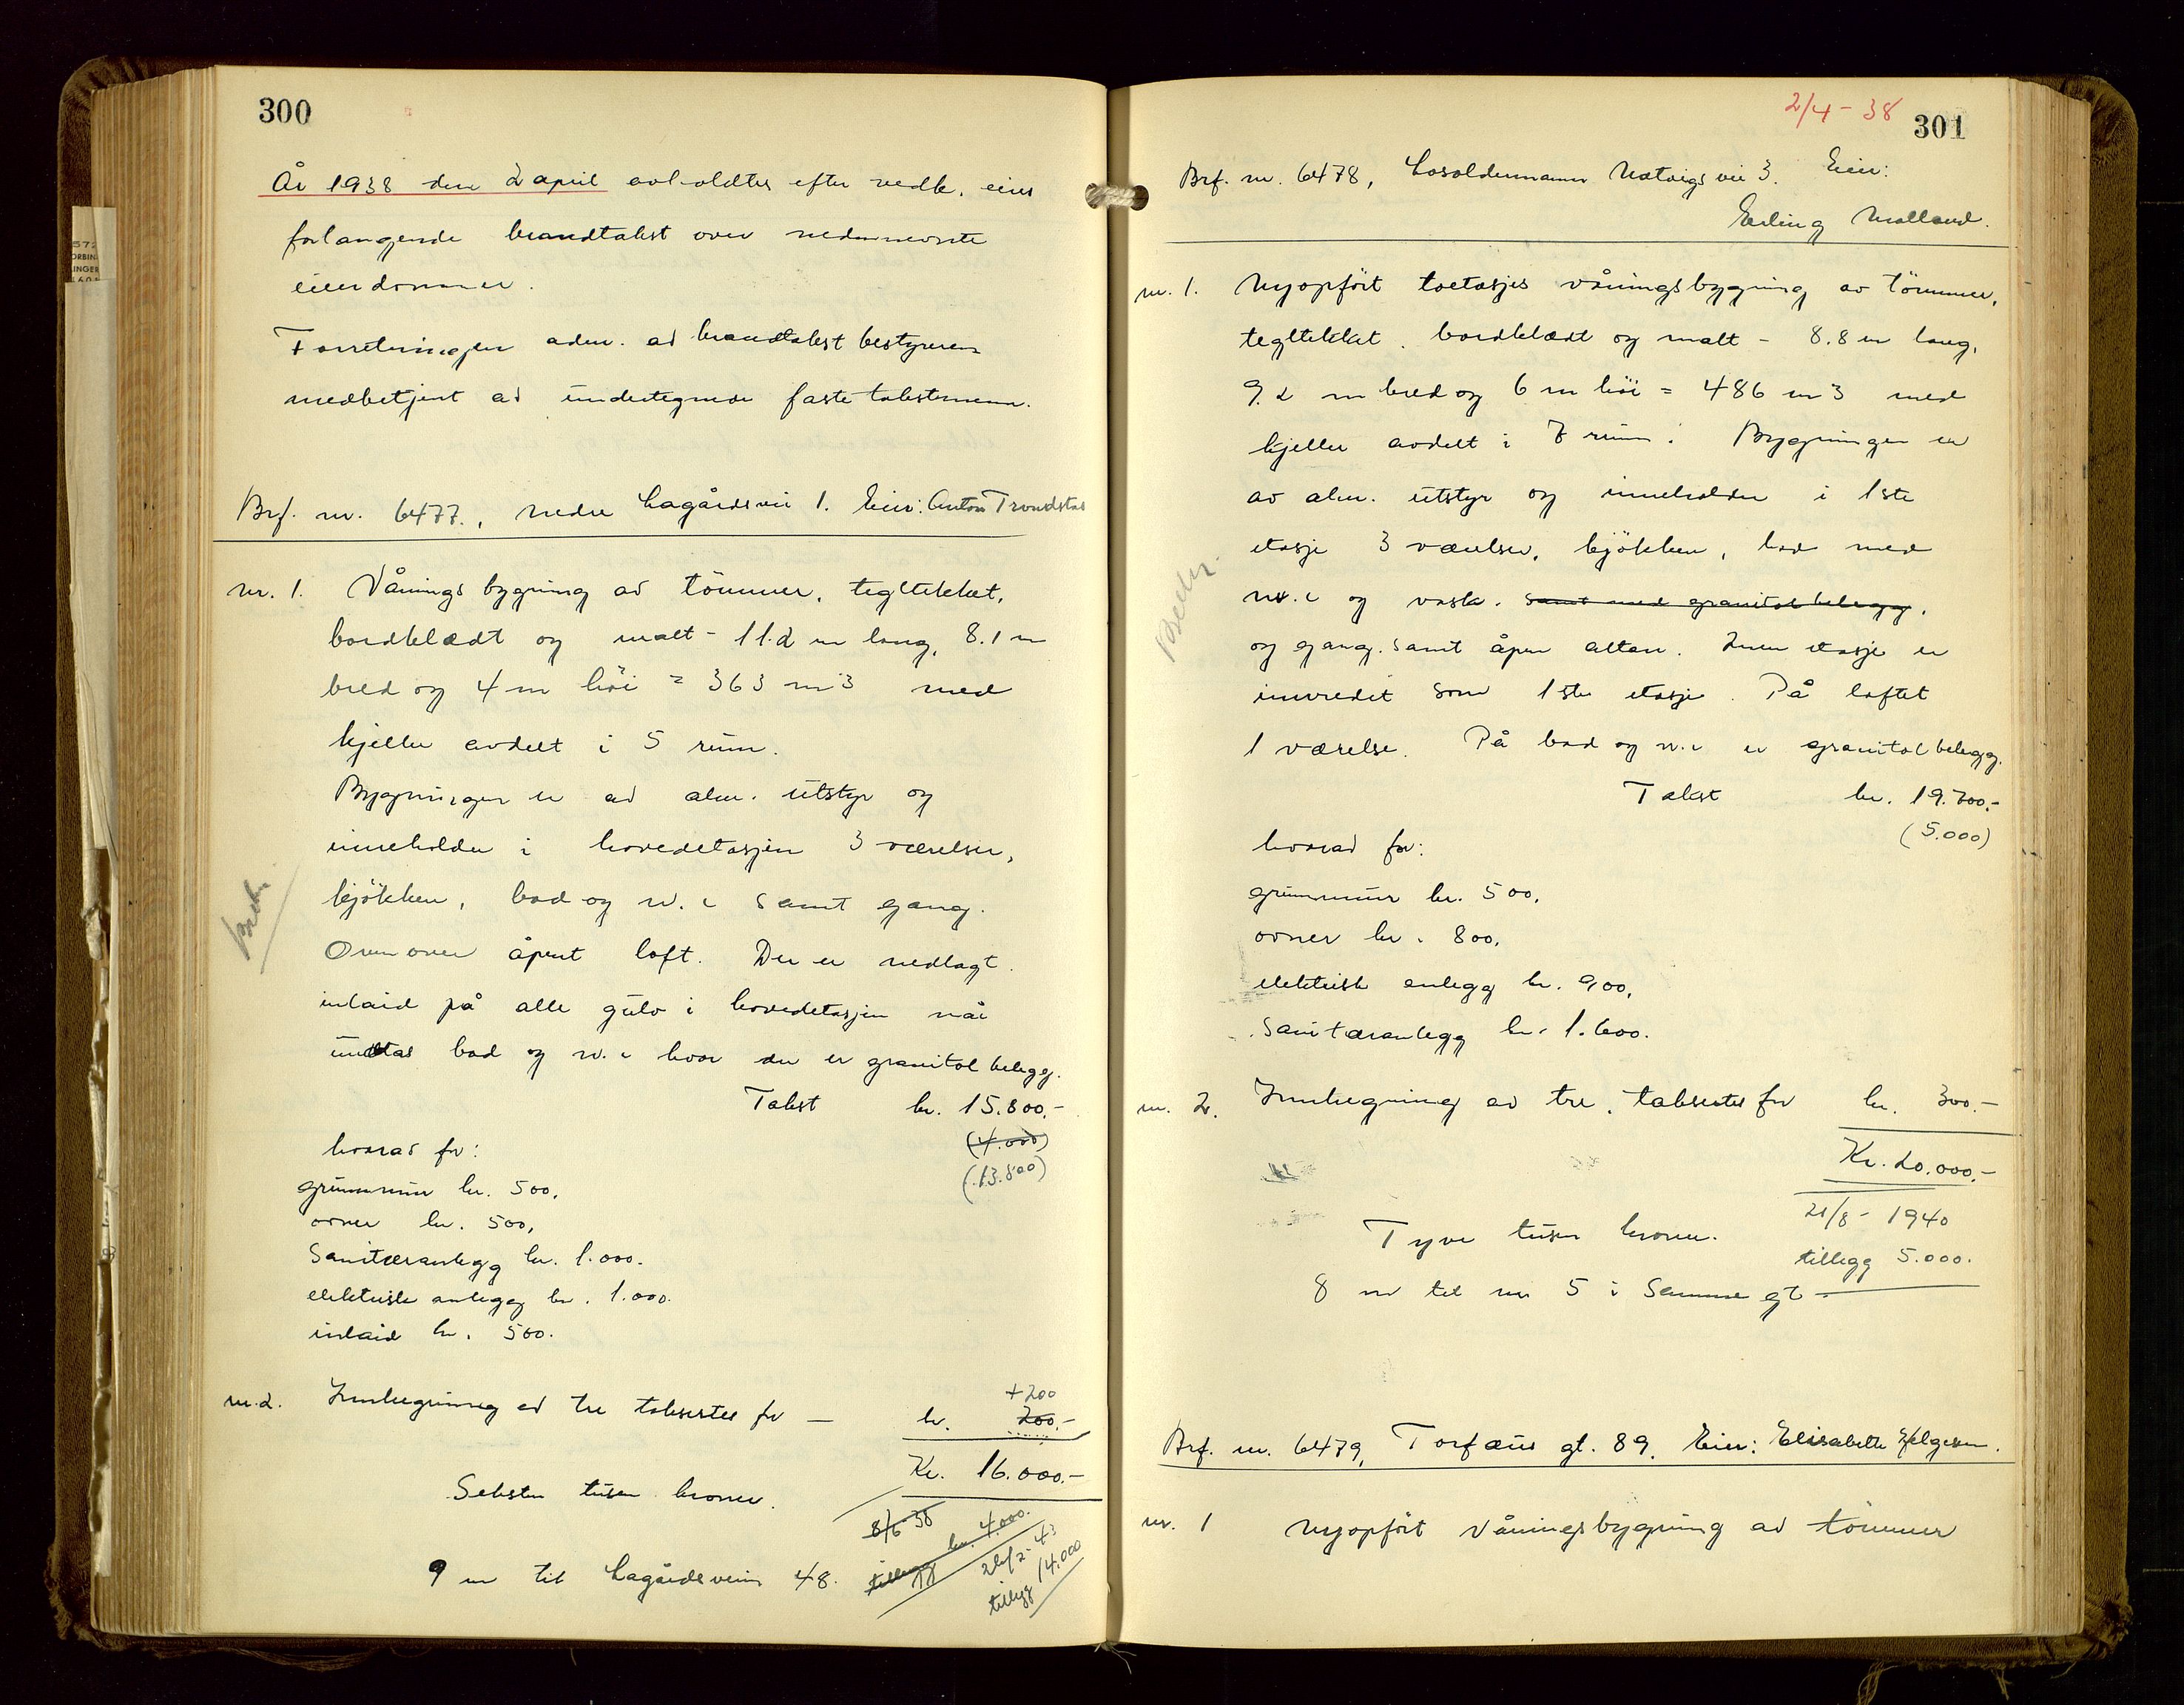 300
År 1938 den 2 april avholdtes efter vedk. eiers
forlangende brandtakst over nedennevnte
eiendommer.
Forretningen adm. av brandtakst bestyreren
medbetjent av undertegnede faste takstmenn.
Brf. nr. 6477., Nedre Lagårdsvei 1. Eier: Anton Trondstad
nr. 1. Vånings bygning av tömmer, tegltekket,
bordklædt og malt - 11.2 m lang, 8.1 m
bred og 4 m höi = 363 m3 med
kjeller avdelt i 5 rum.
Bygningen er av alm. utstyr og
inneholder i hovedetasjen 3 værelser,
kjökken, bad og w.c samt gang.
Ovenover åpent loft. Der er nedlagt
inlaid på alle gulv i hovedetasjen når
undtas bad og w.c hvor der er granitol belegg.
Takst kr. 15.800.-
(4.000)
(13.800)
hvorav for:
grunnmur kr. 500,
ovner kr. 500,
Sanitæranlegg kr. 1.000.
elektrisk anlegg kr. 1.000.
inlaid kr. 500.
+200
nr. 2. Innhegning av tre taksertes for — kr. 200.-
Kr. 16.000.-
Seksten tusen kroner.
8/6 38
tillegg kr. 4.000.
9 m til Lagårdsveien 48.
24/2-43
tillegg 14.000
2/4 - 38
301
Brf. nr. 6478, Losoldermann Natvigs vei 3. Eier:
Erling Molland.
nr. 1. Nyopfört toetasjes våningsbygning av tömmer,
tegltekket, bordklædt og malt - 8.8 m lang,
9.2 m bred og 6 m höi = 486 m3 med
kjeller avdelt i 7 rum. Bygningen er
av alm. utstyr og inneholder i 1ste
etasje 3 værelser, kjökken, bad med
w.c og vask. samt med granitol belegg,
og gang. samt åpen altan. 2nen etasje er
innredet som 1ste etasje. På loftet
1 værelse. På bad og w.c er granitol belegg.
Takst kr. 19.700.-
(5.000)
hvorav for:
grunnmur kr. 500,
ovner kr. 800,
elektrisk anlegg kr. 900,
Sanitæranlegg kr. 1.600.
nr. 2. Innhegning av tre, taksertes for kr. 300.-
Kr. 20.000.-
21/8 - 1940
Tyve tusen kroner.
tillegg 5.000.
8 m til nr 5 i Samme gt -
Brf. nr. 6479, Torfæus gt. 89. Eier: Elisabeth Helgesen.
nr. 1 Nyopfört Våningsbygning av tömmer